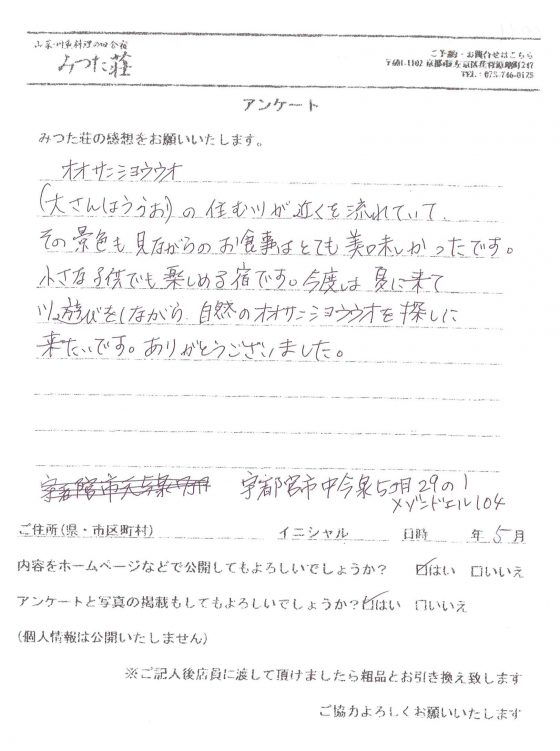 山菜・川魚料理の田舎宿
みつた荘
ご予約・お問合せはこちら
〒601-1102 京都市左京区花脊原地町247
TEL:075-746-0175
アンケート
みつた荘の感想をお願いいたします。
オオサンショウウオ
(大さんしょううお)の住む川が近くを流れていて
その景色も見ながらのお食事はとても美味しかったです。
小さな子供でも楽しめる宿です。今度は夏に来て
川遊びをしながら自然のオオサンショウウオを探しに
来たいです。ありがとうございました。
宇都宮市中今泉5丁目29の1
メゾンドエル104
ご住所(県・市区町村) イニシャル 日時 年 5月
内容をホームページなどで公開してもよろしいでしょうか? ☑はい □いいえ
アンケートと写真の掲載もしてもよろしいでしょうか?☑はい □いいえ
(個人情報は公開いたしません)
※ご記入後店員に渡して頂けましたら粗品とお引き換え致します
ご協力よろしくお願いいたします